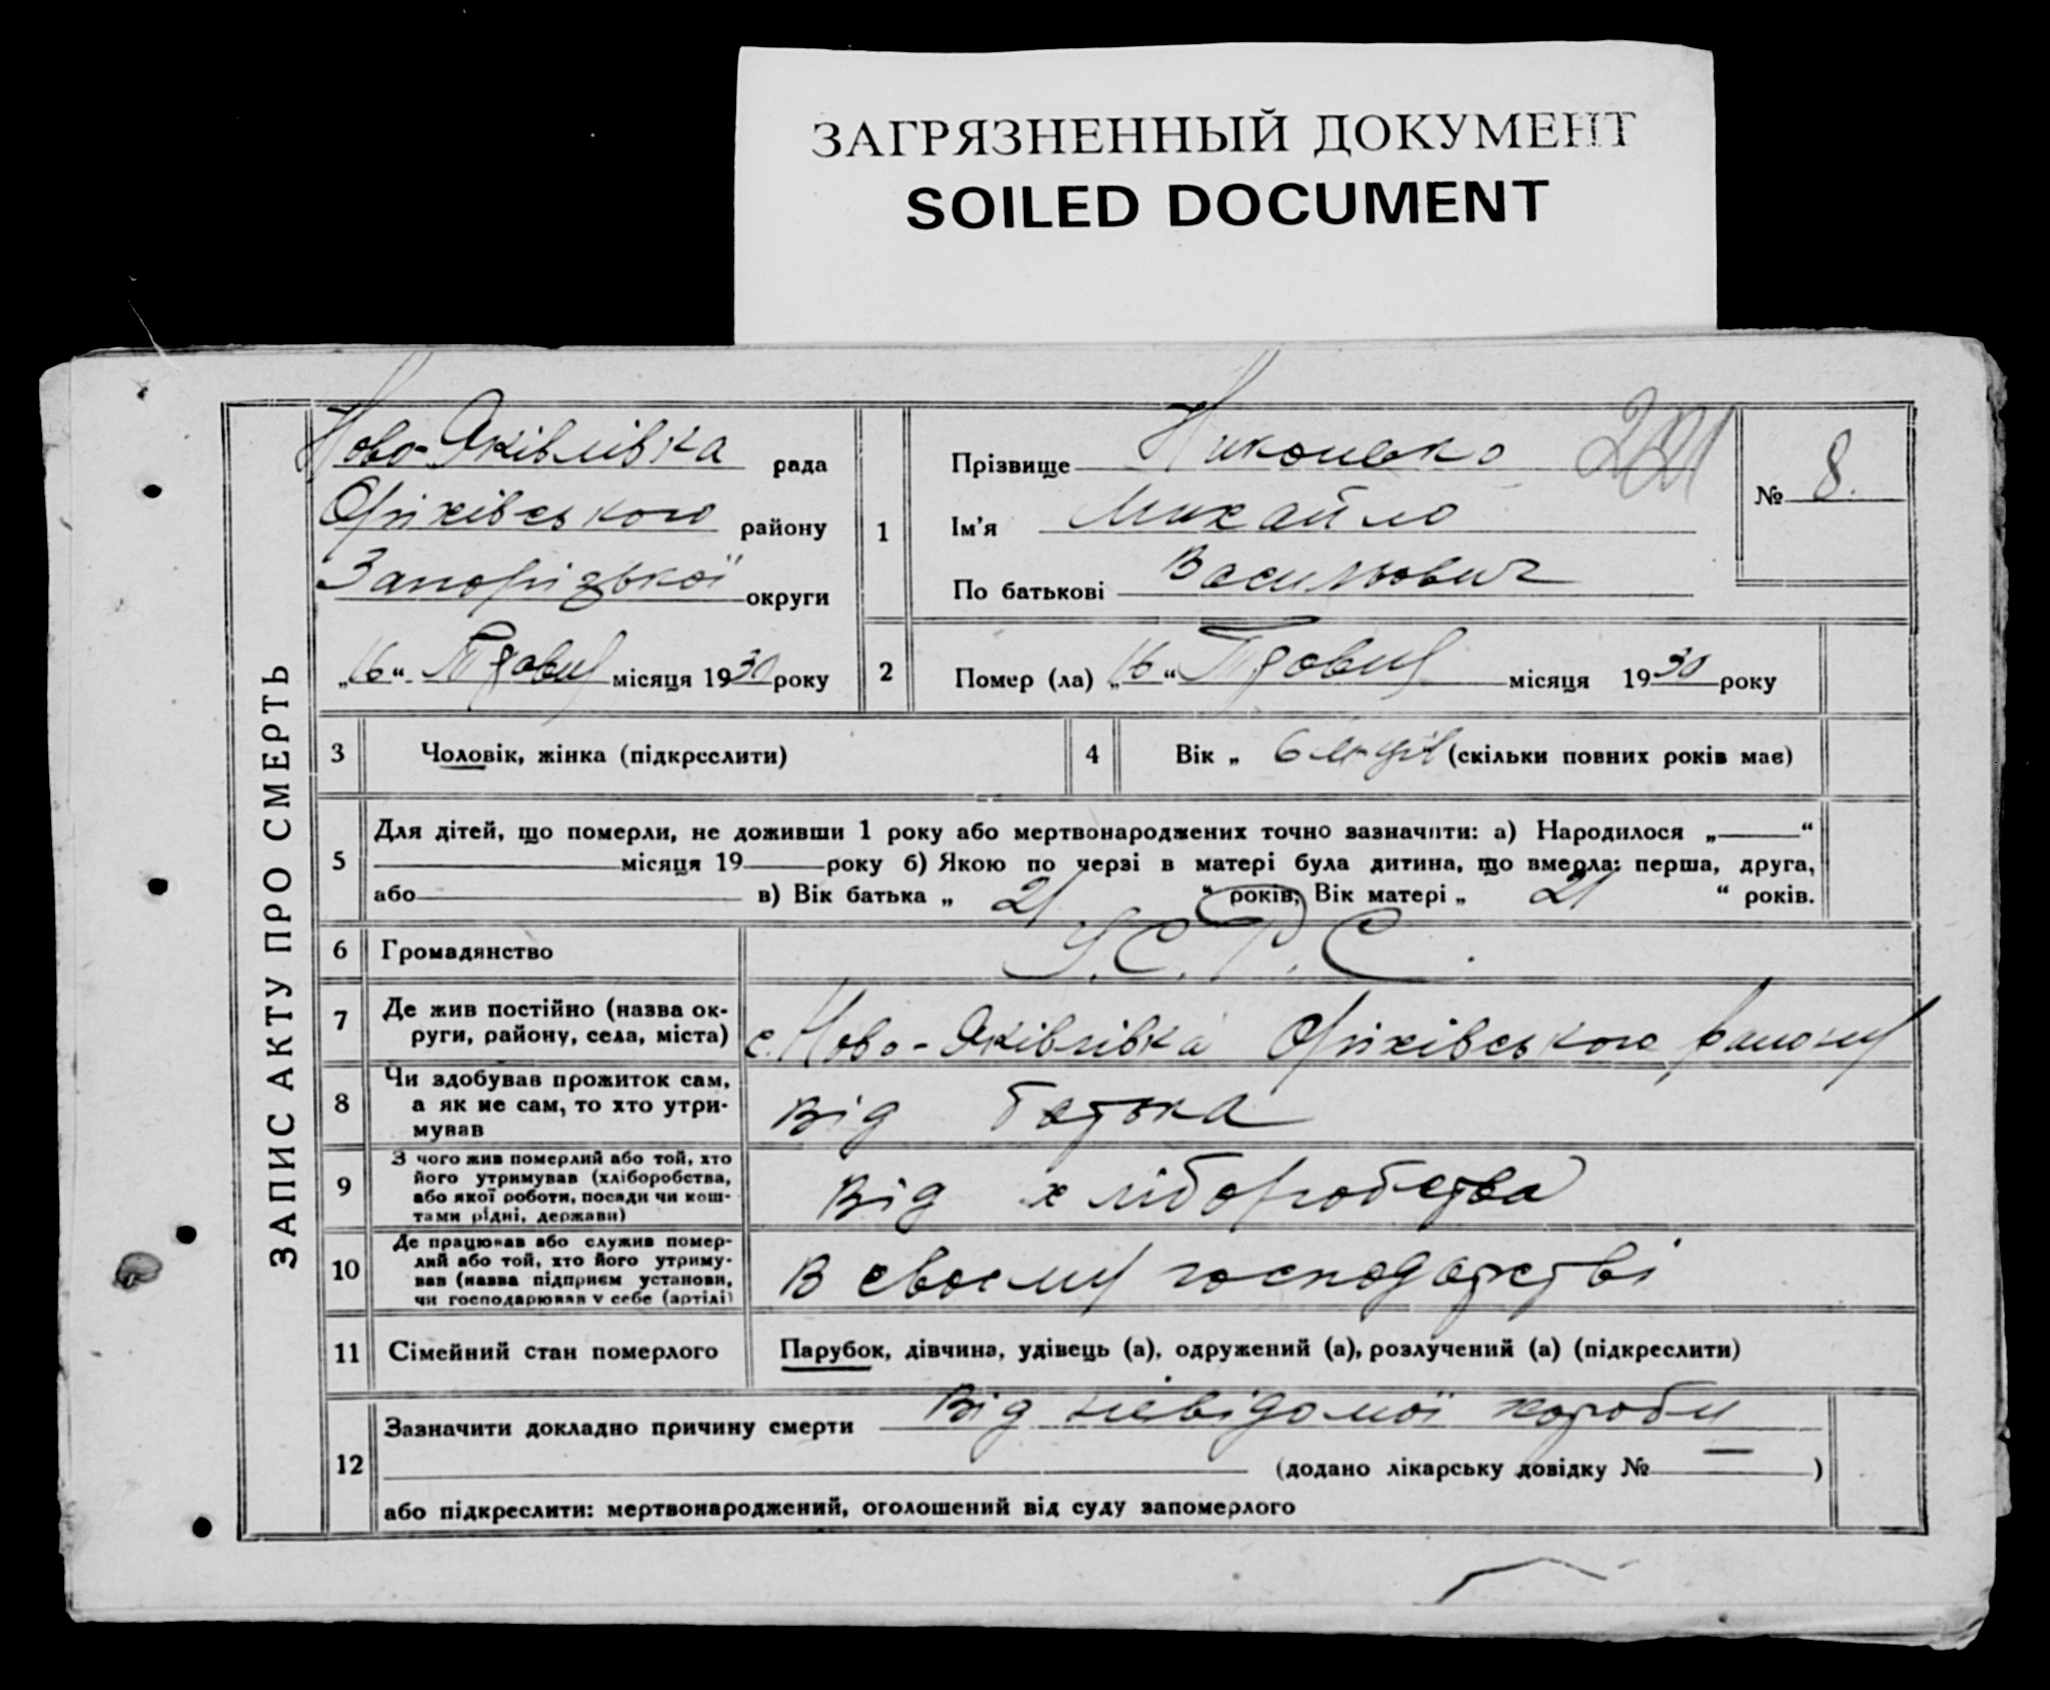 ЗАГРЯЗНЕННЫЙ ДОКУМЕНТ
SOILED DOCUMENT
ЗАПИС АКТУ ПРО СМЕРТЬ
Ново-Яківлівка рада
Оріхівського району
Запорізької округи
„16“ Травня місяця 1930 року
1
Прізвище Никоненко
Ім'я Михайло
По батькові Васильович
№ 8.
2 Помер (ла) „16“ Травня місяця 1930 року
3 Чоловік, жінка (підкреслити)
4 Вік „ 6 місяців (скільки повних років має)
5 Для дітей, що померли, не доживши 1 року або мертвонароджених точно зазначити: а) Народилося „——“
місяця 19 року б) Якою по черзі в матері була дитина, що вмерла: перша, друга,
або в) Вік батька „ 21 “ років, Вік матері „ 21 “ років.
6 Громадянство У.С.Р.С.
7 Де жив постійно (назва ок-
руги, району, села, міста) с. Ново-Яківлівка Оріхівського району
8 Чи здобував прожиток сам,
а як не сам, то хто утри-
мував
від батька
9 З чого жив померлий або той, хто
його утримував (хліборобства,
або якої роботи, посади чи кош-
тами рідні, держави)
від хліборобства
10 Де працював або служив помер-
лий або той, хто його утриму-
вав (назва підприєм установи,
чи господарював у себе (артілі)
в своєму господарстві
11 Сімейний стан померлого Парубок, дівчина, удівець (а), одружений (а), розлучений (а) (підкреслити)
12 Зазначити докладно причину смерти від невідомої хороби
(додано лікарську довідку № — )
або підкреслити: мертвонароджений, оголошений від суду запомерлого